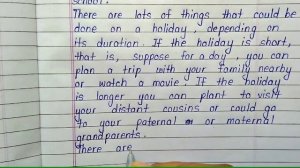 school.
There are lots of things that could be
done on a holiday, depending on
its duration. If the holiday is short,
that is, suppose for a day, you can
plan a trip with your family nearby
or watch a movie. If the holiday
is longer you can plant to visit
your distant cousins or could go
to your paternal or maternal
grandparents.
There are